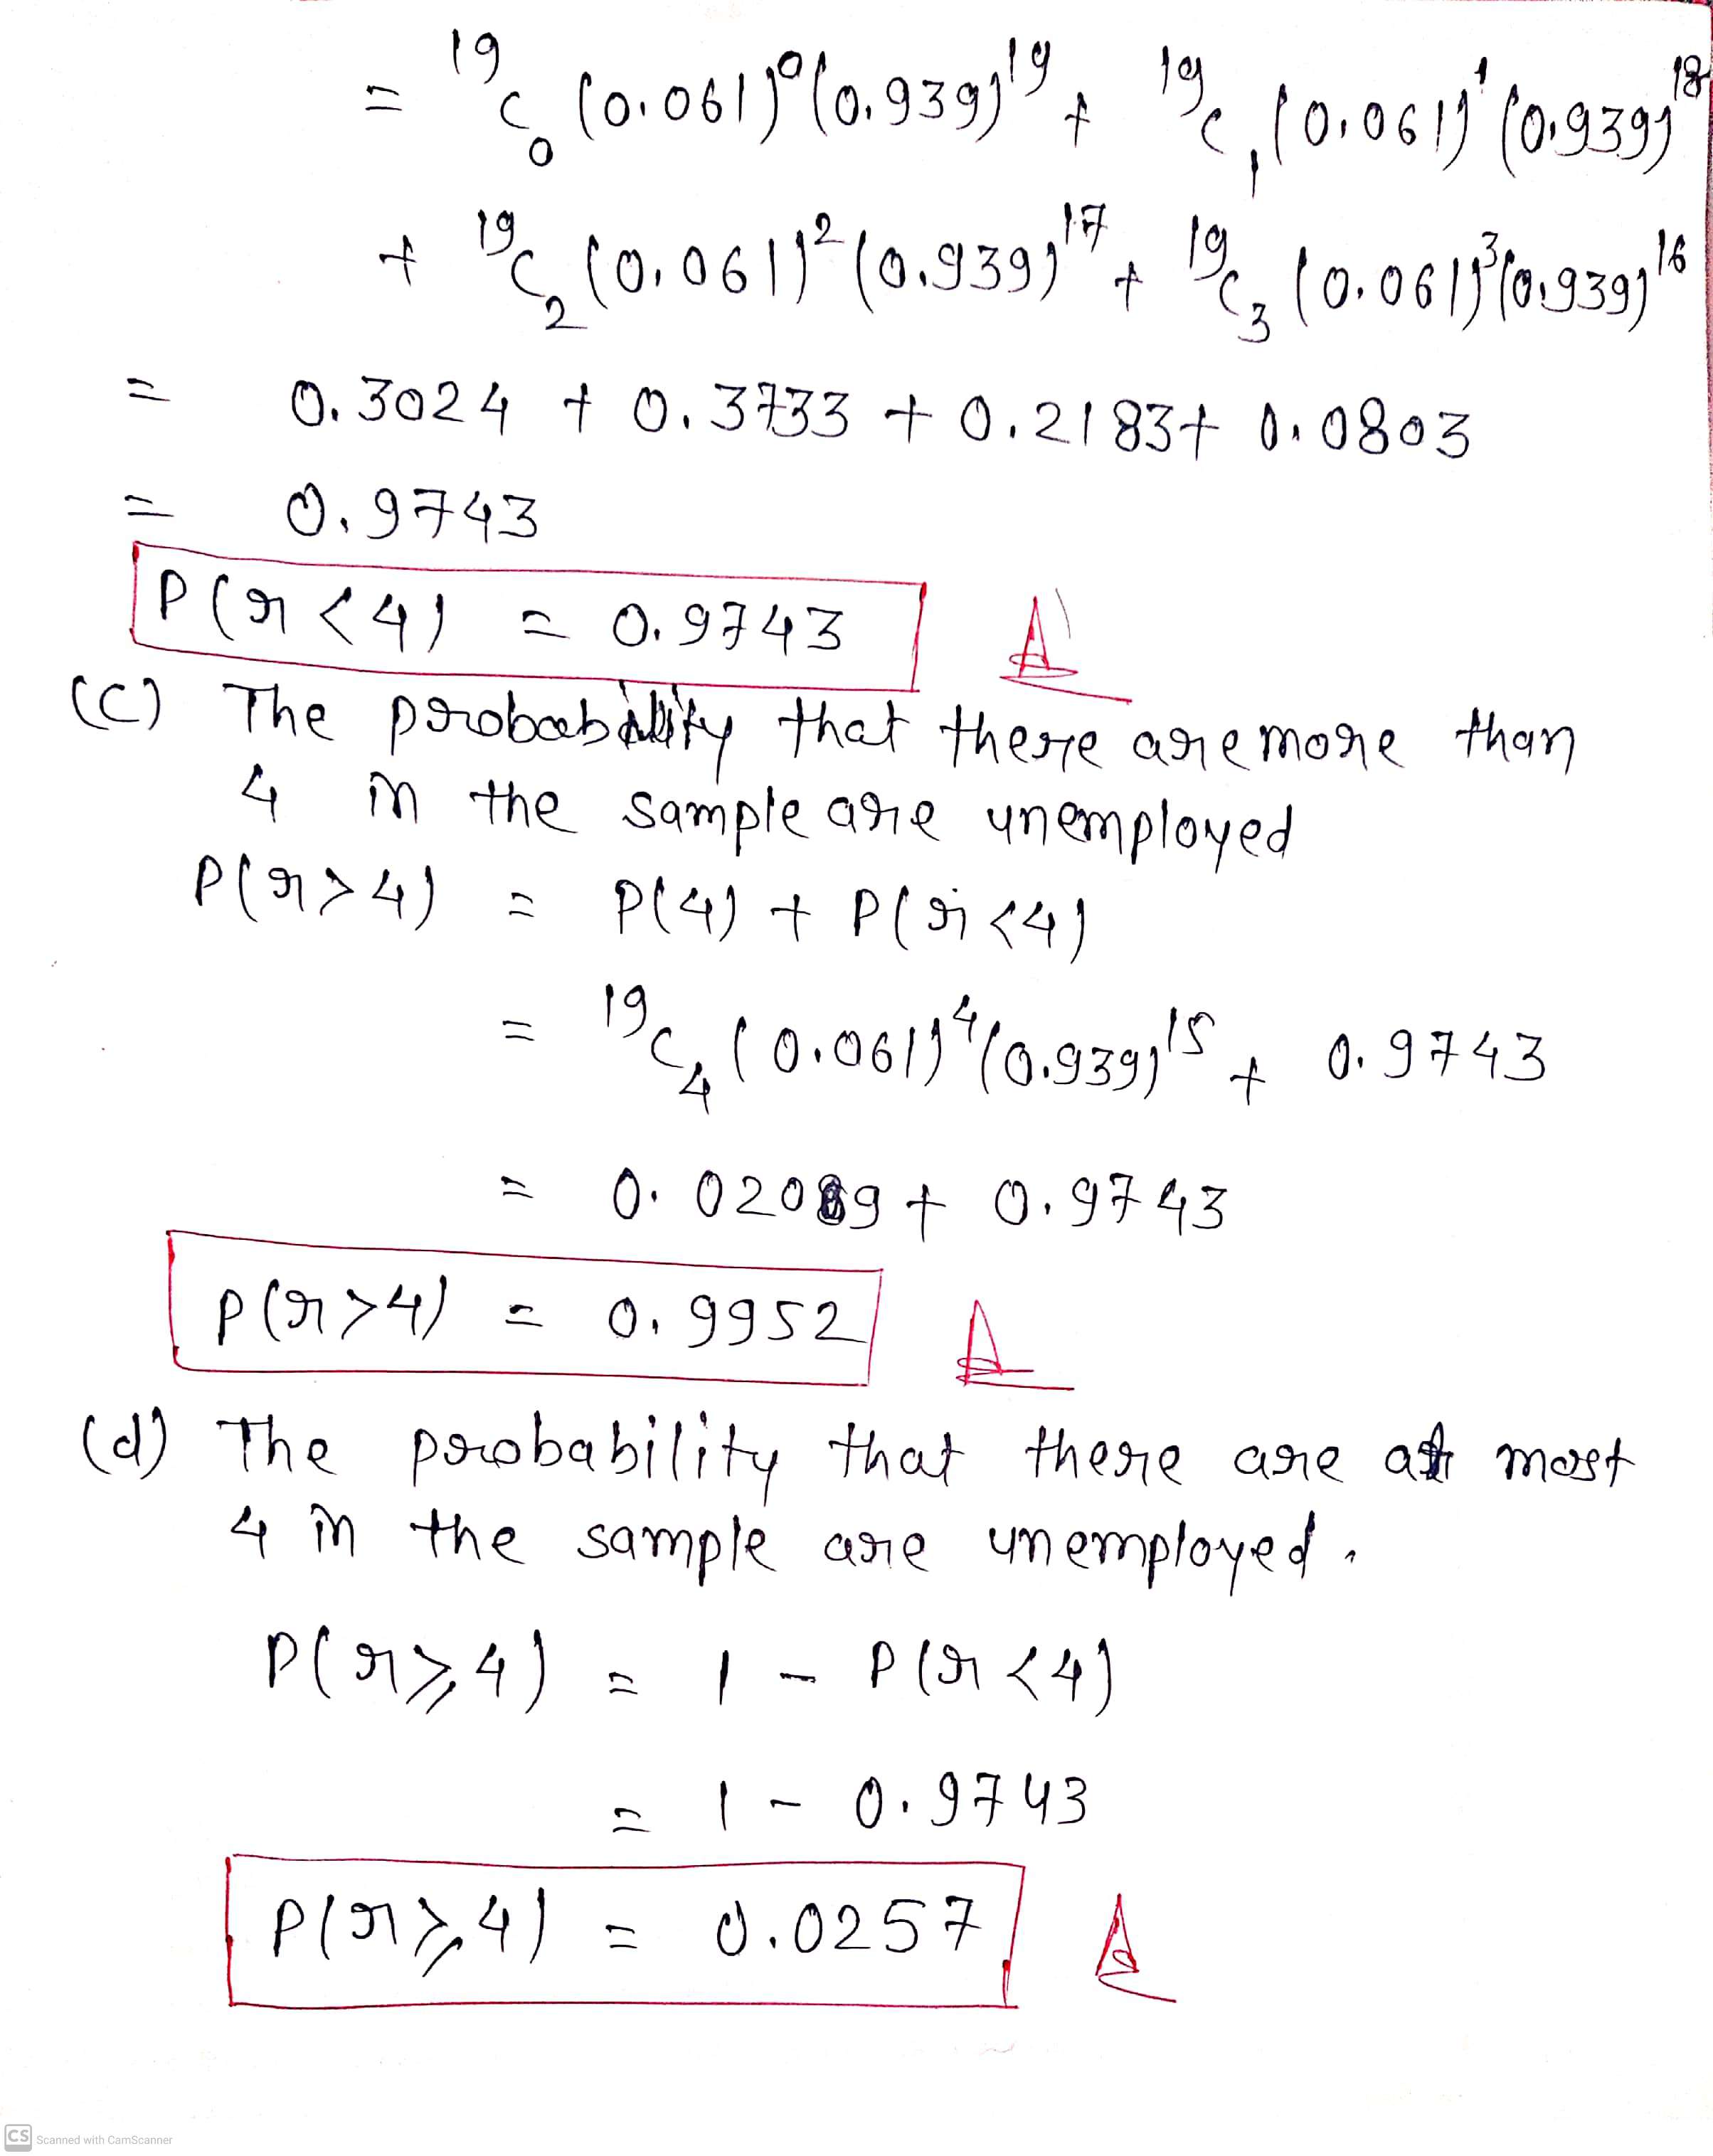 = ¹⁹C₀ (0.061)⁰(0.939)¹⁹ + ¹⁹C₁ (0.061)¹ (0.939)¹⁸
+ ¹⁹C₂ (0.061)² (0.939)¹⁷ + ¹⁹C₃ (0.061)³(0.939)¹⁶
= 0.3024 + 0.3733 + 0.2183 + 0.0803
= 0.9743
P(r < 4) = 0.9743 A
(C) The probability that there are more than
4 in the sample are unemployed
P(r > 4) = P(4) + P(r < 4)
= ¹⁹C₄ (0.061)⁴ (0.939)¹⁵ + 0.9743
= 0.02089 + 0.9743
P(r > 4) = 0.9952 A
(d) The probability that there are at most
4 in the sample are unemployed.
P(r ⩾ 4) = 1 - P(r < 4)
= 1 - 0.9743
P(r ⩾ 4) = 0.0257 A
CS Scanned with CamScanner